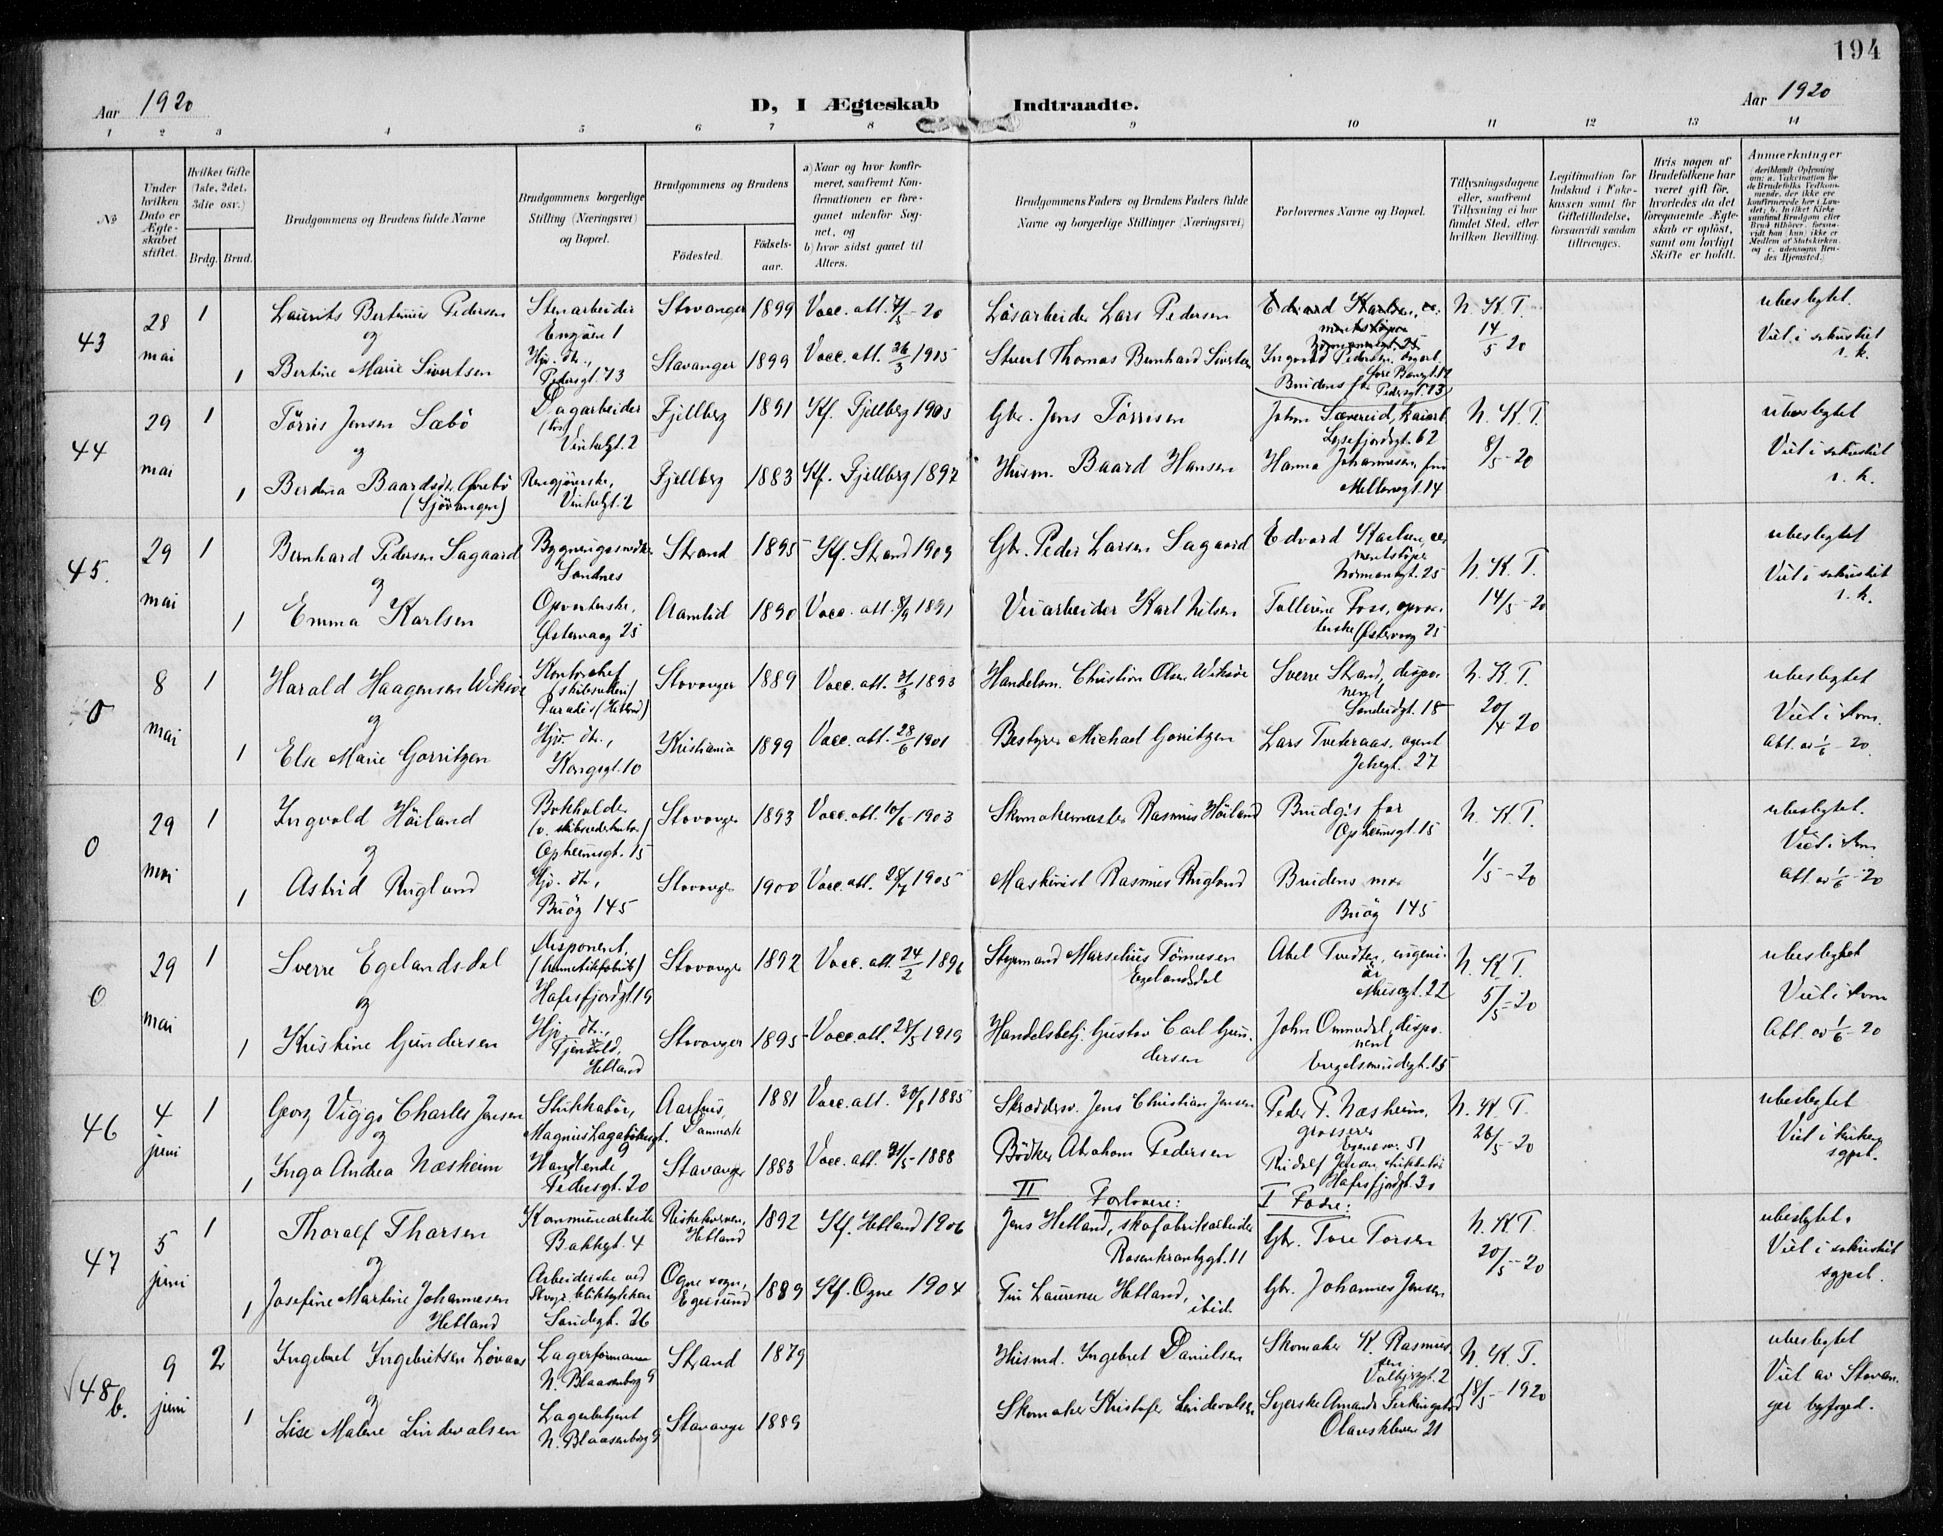 194
Aar 1920
D, I Ægteskab Indtraadte.
Aar 1920
1 2 3 4 5 6 7 8 9 10 11 12 13 14
No
Under hvilken Dato er Ægteskabet stiftet.
Hvilket Gifte (1ste, 2det, 3die osv.)
Brdg. Brud.
Brudgommens og Brudens fulde Navne
Brudgommens borgerlige Stilling (Næringsvei) og Bopæl.
Brudgommens og Brudens
Fødested.
Fødselsaar.
a) Naar og hvor konfirmeret, saafremt Konfirmationen er foregaaet udenfor Sognet, og
b) hvor sidst gaaet til Alters.
Brudgommens Faders og Brudens Faders fulde Navne og borgerlige Stillinger (Næringsvei)
Forlovernes Navne og Bopæl.
Tillysningsdagene eller, saafremt Tillysning ei har fundet Sted, efter hvilken Bevilling.
Legitimation for Indskud i Enkekassen samt for Giftetilladelse, forsaavidt saadan tiltrænges.
Hvis nogen af Brudefolkene har været gift før, hvorledes da det foregaaende Ægteskab er opløst, samt om lovligt Skifte er holdt.
Anmærkninger
43
28 mai
1
Laurits Bertinius Pedersen
Stenarbeider Engøen 1
Stavanger 1899
Vacc. att. 4/5 - 20
Løsarbeider Lars Pedersen
Edvard Karlsen, cementstøper Normansgt. 25
N. K. T.
14/5 20
ubeslegtet.
Viet i sakristiet
og
1
Bertine Marie Sivertsen
Hjv. dtr., Pedersgt. 73
Stavanger 1899
Vacc. att. 26/3 1905
Stuert Thomas Bernhard Sivertsen
Ingvald Pedersen
Brudens far Pedersgt. 73
44
29 mai
1
Tørris Jensen Sæbø
Dagarbeider Vinkelgt. 2
Fjellberg 1891
Kf. Fjellberg 1905
Gbr. Jens Tørrisen
John Sævereid, kaiarb. Lysefjordsgt. 62
N. K. T.
8/5 - 20
ubeslegtet
Viet i sakristiet
og
1
Berdina Baardsdtr. Ørebø (Sjøvangen)
Rengjørerske, Vinkelgt. 2
Fjellberg 1883
Kf. Fjellberg 1897
Husm. Baard Hansen
Hanna Johannesen, fru Møllevgt. 14
45.
29 mai
1
Bernhard Pedersen Sagaard
Bygningssnedker Sandnes
Strand 1895
Kf. Strand 1909
Gbr. Peder Larsen Sagaard
Edvard Karlsen, cementstøper Normansgt. 25
N. K. T.
14/5 - 20
ubeslegtet
Viet i sakristiet
og
1
Emma Karlsen
Opvarterske, Østervaag 25
Aamlid 1890
Vacc. att. 8/9 1891
Veiarbeider Karl Nilsen
Talline Foss, opvarterske Østervaag 25
0
8 mai
1
Harald Haagensen Wiksøe
Kontorchef (skibsrederi) Paradis (Hetland)
Stavanger 1889
Vacc. att. 21/3 1893
Handelsm. Christian Olsen Wiksøe
Sverre Strand, disponent Sandeidgt. 15
N. K. T.
20/4 20
ubeslegtet
Viet i dom.
Att. av 1/6 - 20
og
1
Else Marie Gorritzen
Hjv. dtr., Kongsgt. 10
Kristiania 1899
Vacc. att. 28/6 1901
Bestyrer Michael Gorritzen
Lars Tveteraas, agent Jelsegt. 27
0
29 mai
1
Ingvald Høiland
Bokholder (v. skibsrederkontor) Opheimsgt. 15
Stavanger 1893
Vacc. att. 10/6 1903
Skomakermester Rasmus Høiland
Brudg's far Opheimsgt. 15
N. K. T.
1/5 - 20
ubeslegtet.
Viet i dom.
Att. av 1/6 - 20
og
1
Astrid Rugland
Hjv. dtr., Buøg 145
Stavanger 1900
Vacc. att. 1905
Maskinist Rasmus Rugland
Brudens mor Buøg 145
0
29 mai
1
Sverre Egelandsdal
Disponent, (hermetikfabrik) Hafrsfjordgt. 19
Stavanger 1892
Vacc. att. 24/2 1896
Styrmand Marselius Tønnesen Egelandsdal
Abel Tvedten, ingeniør Musegt. 22
N. K. T.
5/5 - 20
ubeslegtet
Viet i dom
Att. av 1/6 - 20
og
1
Kristine Gundersen
Hjv. dtr., Tjensvold, Hetland
Stavanger 1895
Vacc. att. 28/5 1919
Handelsbetj. Gustav Carl Gundersen
John Ommundsl, disponent Engelsmindegt. 15
46
4 juni
1
Georg Viggo Charles Jensen
Stukkatør, Magnus Lagabøtersgt. 9
Aarhus, Danmark 1881
Vacc. att. 30/8 1885
Skræddersv. Jens Christian Jensen
Peder P. Næsheim, grosserer Egenesv. 51
N. K. T.
26/5 - 20
ubeslegtet
Viet i kirken
sgpst.
og
1
Inga Andrea Næsheim
Handlende Pedersgt. 20
Stavanger 1883
Vacc. att. 31/5 - 1888
Bødker Abraham Pedersen
Rudolf Jensen stukkatør Hafrsfjordgt. 30
II Forlovere:
I Fædre:
47
5 juni
1
Thoralf Thorsen
Kommunearbeider Bakkegt. 4
Riskekvernen, Hetland 1892
Kf. Hetland 1906
Jens Hetland, skofabrikarbeider Rosenkrantzgt. 11
Gbr. Tore Torsen
N. K. T.
20/5 - 20
ubeslegtet.
Viet i sakristiet
sgpst.
og
1
Josefine Martine Johannesen Hetland
Arbeiderske ved Stvgr. blikktrykkeri Sandegt. 26
Ogne sogn, Egersund 1889
Kf. Ogne 1904
Fru Laurense Hetland, ibid.
Gbr. Johannes Jensen
48 b.
9 juni
2
Ingebret Ingebretsen Løvaas
Lagerformann N. Blaasenborg 9
Strand 1879
Husmd. Ingebret Danielsen
Skomaker K. Rasmussen Valbjergt. 2
N. K. T.
18/5 - 1920
ubeslegtet
Viet av Stavanger byfoged.
og
1
Lise Malene Lindevalsen
Lagerbetjent N. Blaasenborg 9
Stavanger 1889
Skomaker Kristofer Lindevalsen
Syerske Amanda Terkingstad Olavskleven 21